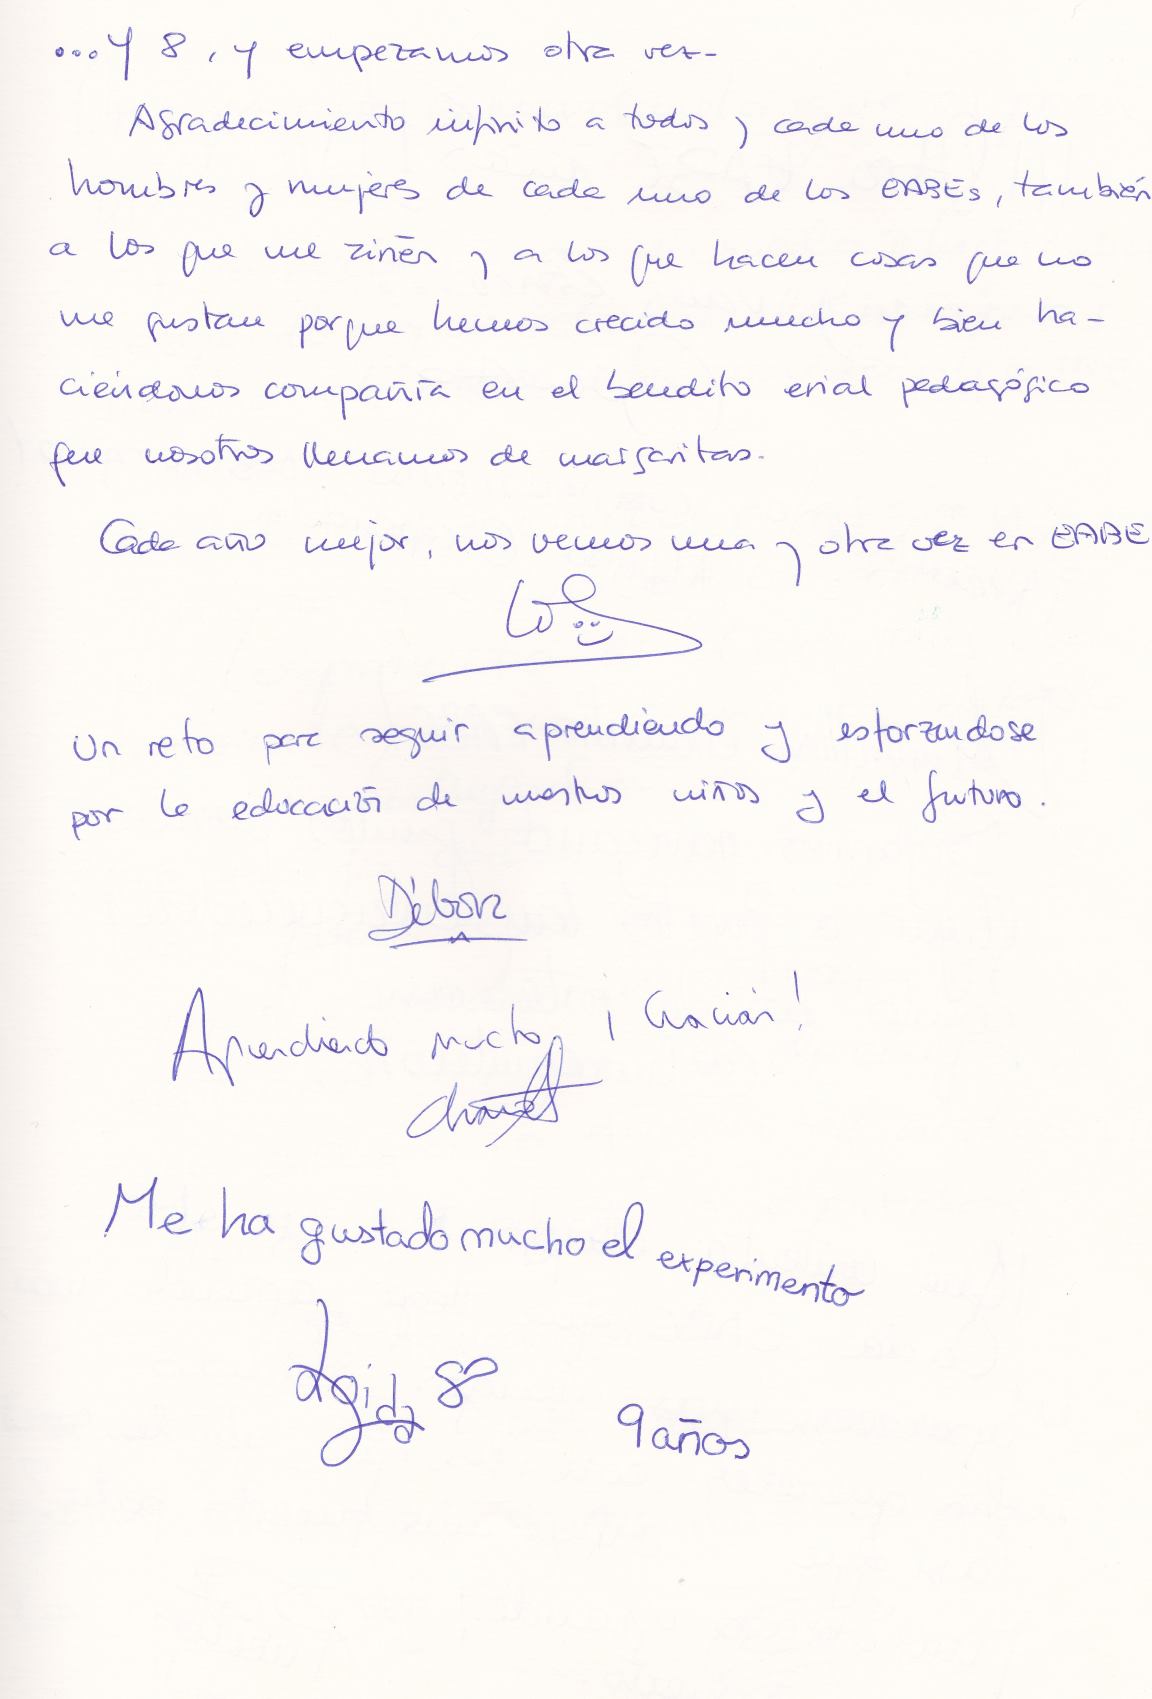 ...y 8, y empezamos otra vez-
Agradecimiento infinito a todos y cada uno de los
hombres y mujeres de cada uno de los EABEs, también
a los que me riñen y a los que hacen cosas que no
me gustan porque hemos crecido mucho y bien ha-
ciéndonos compañía en el bendito erial pedagógico
que nosotros llenamos de margaritas.
Cada año mejor, nos vemos una y otra vez en EABE
Un reto para seguir aprendiendo y esforzándose
por la educación de nuestros niños y el futuro.
Débora
Aprendiendo mucho, ¡Gracias!
Me ha gustado mucho el experimento
9 años